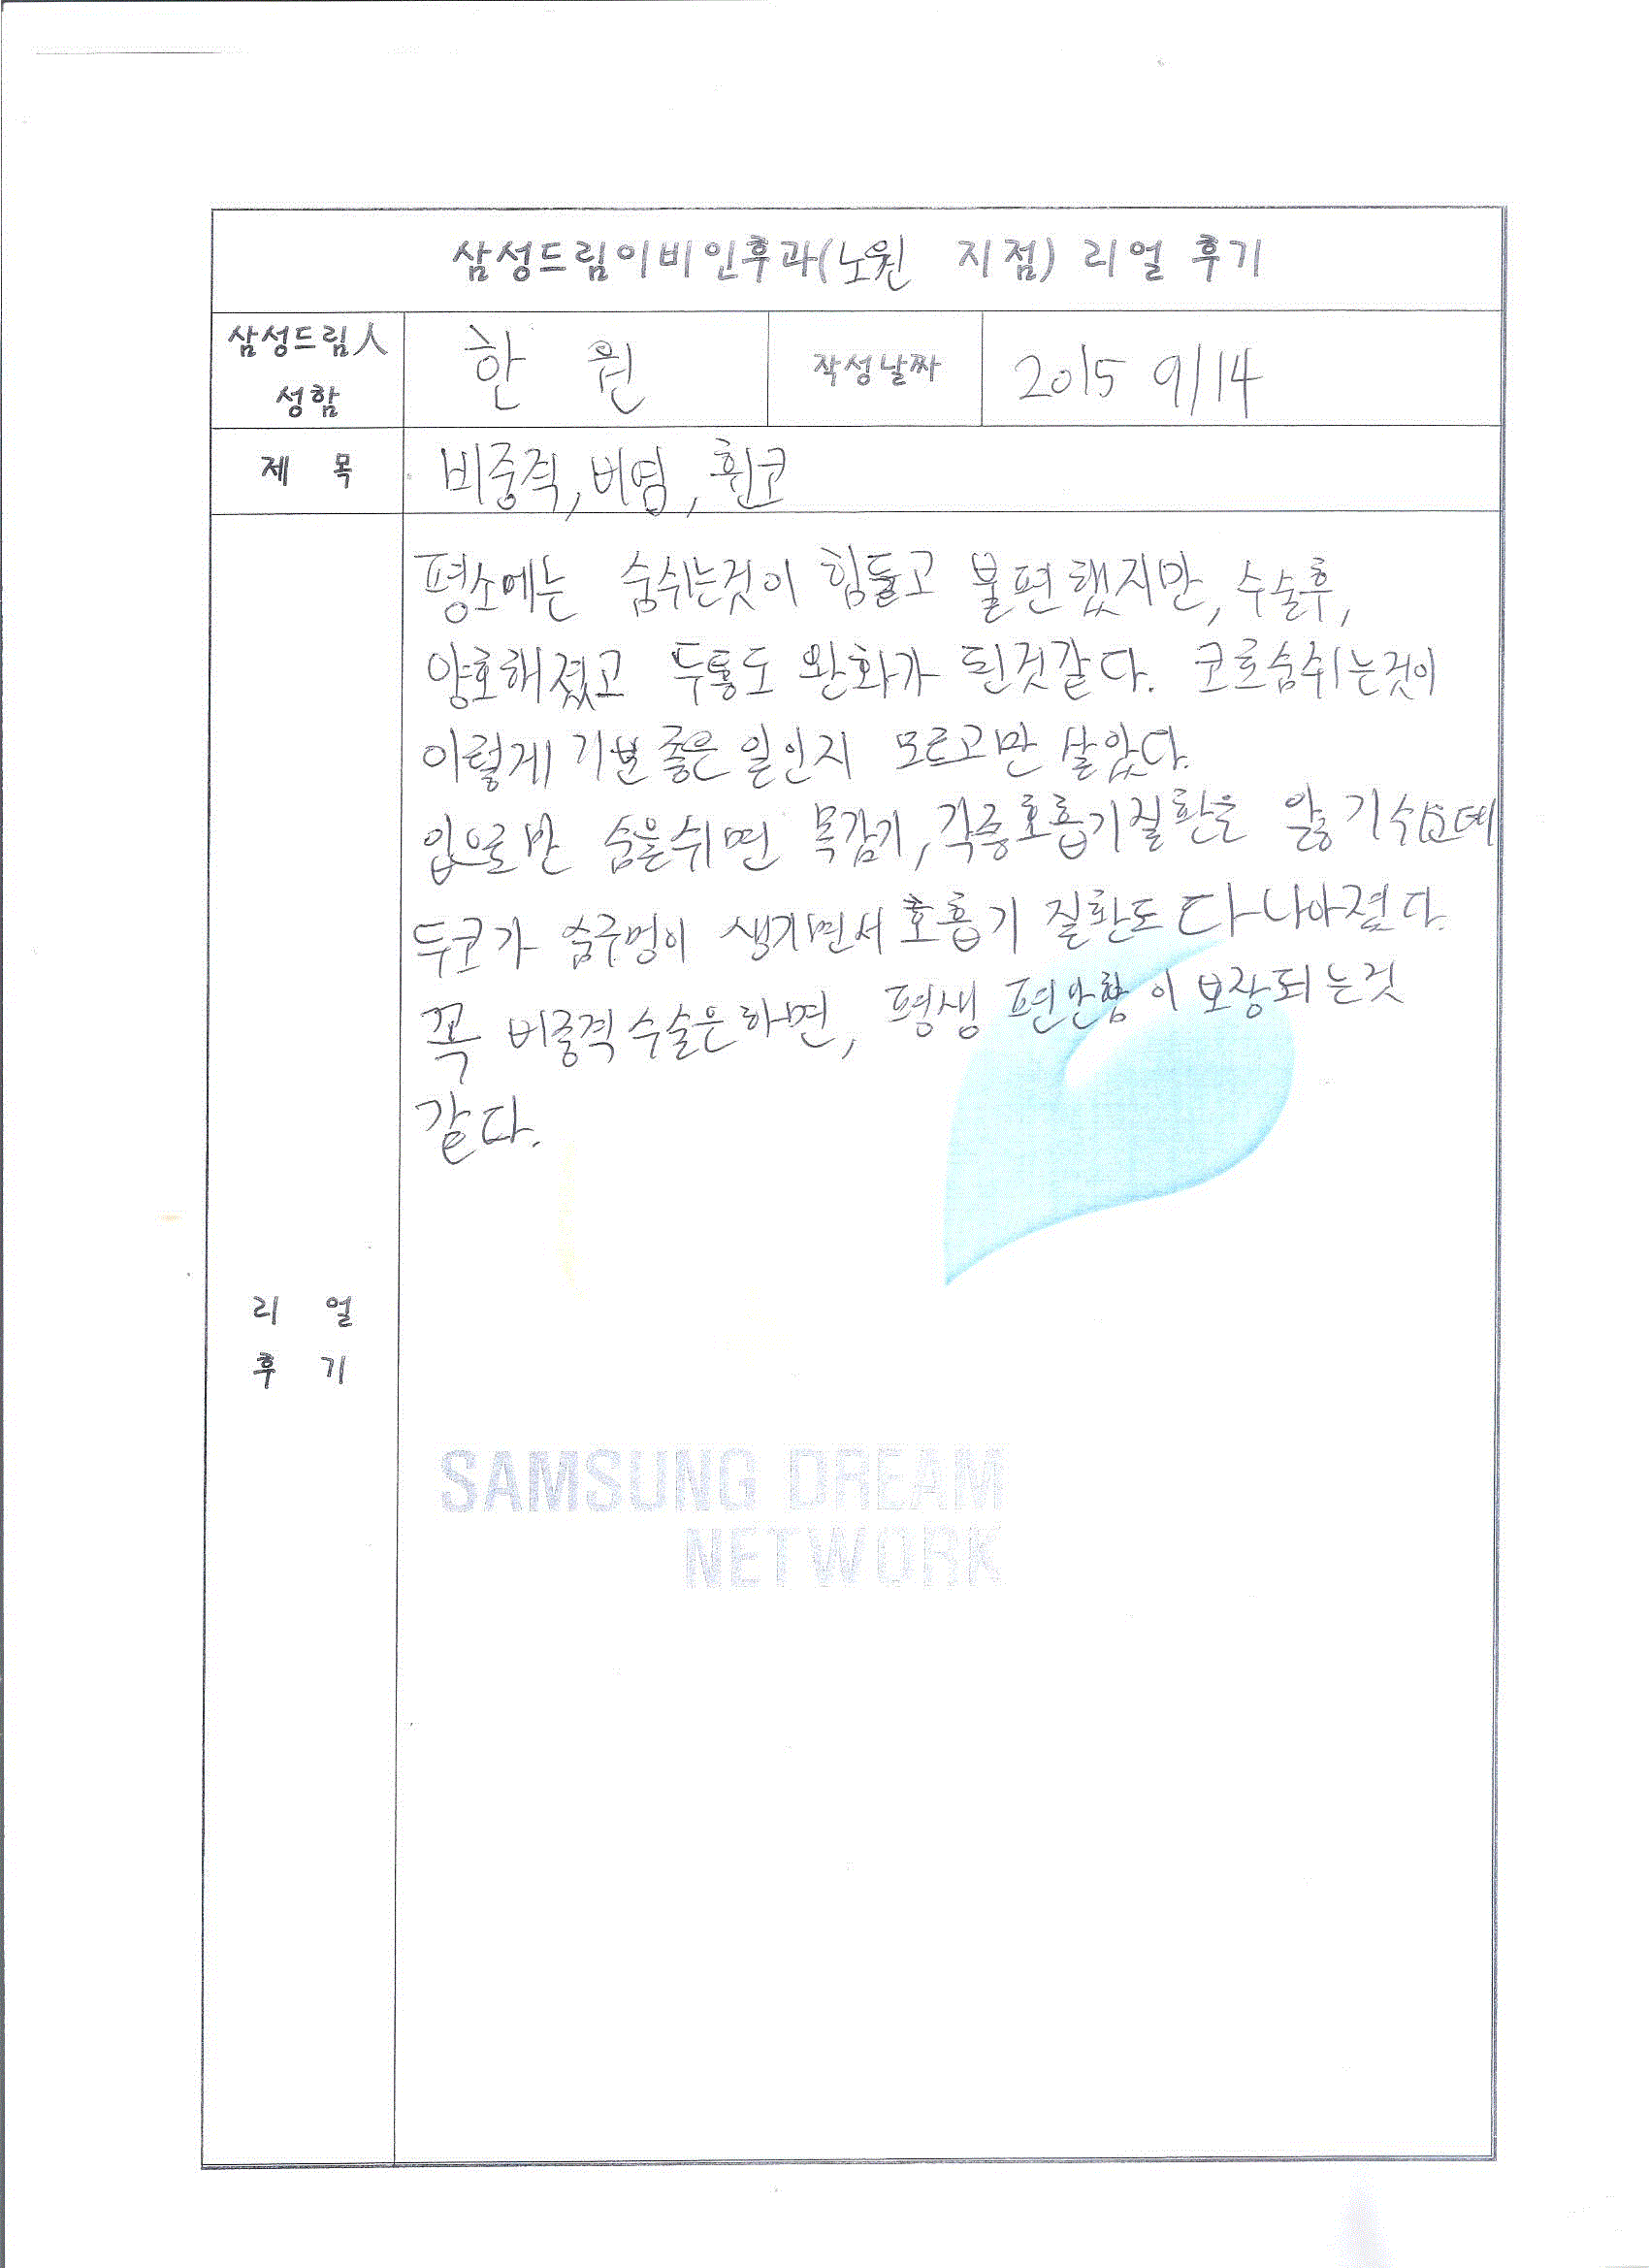 삼성드림이비인후과(노원 지점) 리얼 후기
삼성드림人 성함
한 원
작성날짜
2015 9/14
제 목
비중격, 비염, 휜코
리 얼 후 기
평소에는 숨쉬는것이 힘들고 불편했지만, 수술후,
양호해졌고 두통도 완화가 된것같다. 코로숨쉬는것이
이렇게 기분 좋은 일인지 모르고만 살았다.
입으로만 숨을쉬면 목감기, 각종호흡기질환을 앓기쉬운데
두코가 숨구멍이 생기면서 호흡기 질환도 다 나아졌다.
꼭 비중격수술은하면, 평생 편안함이 보장되는것
같다.
SAMSUNG DREAM
NETWORK